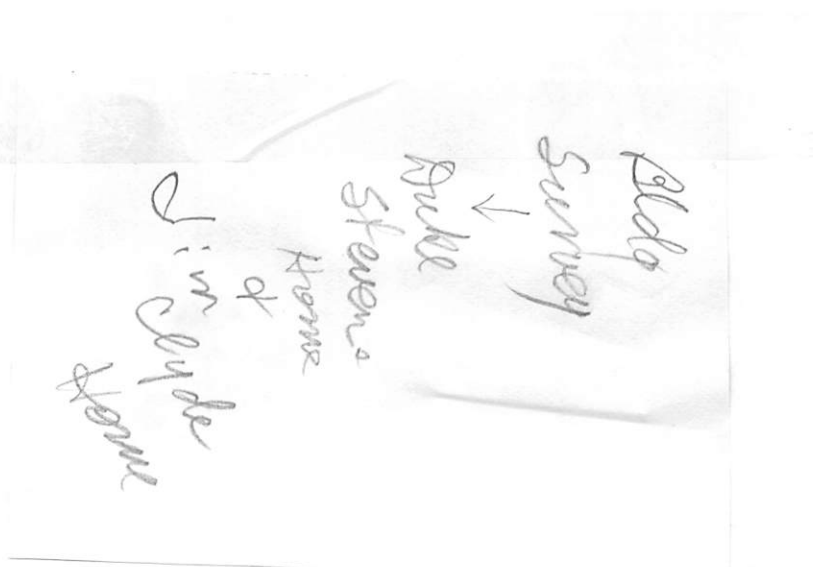 Bldg
Survey
↓
Duke
Stevens
Home
&
Jim
Clyde
Home